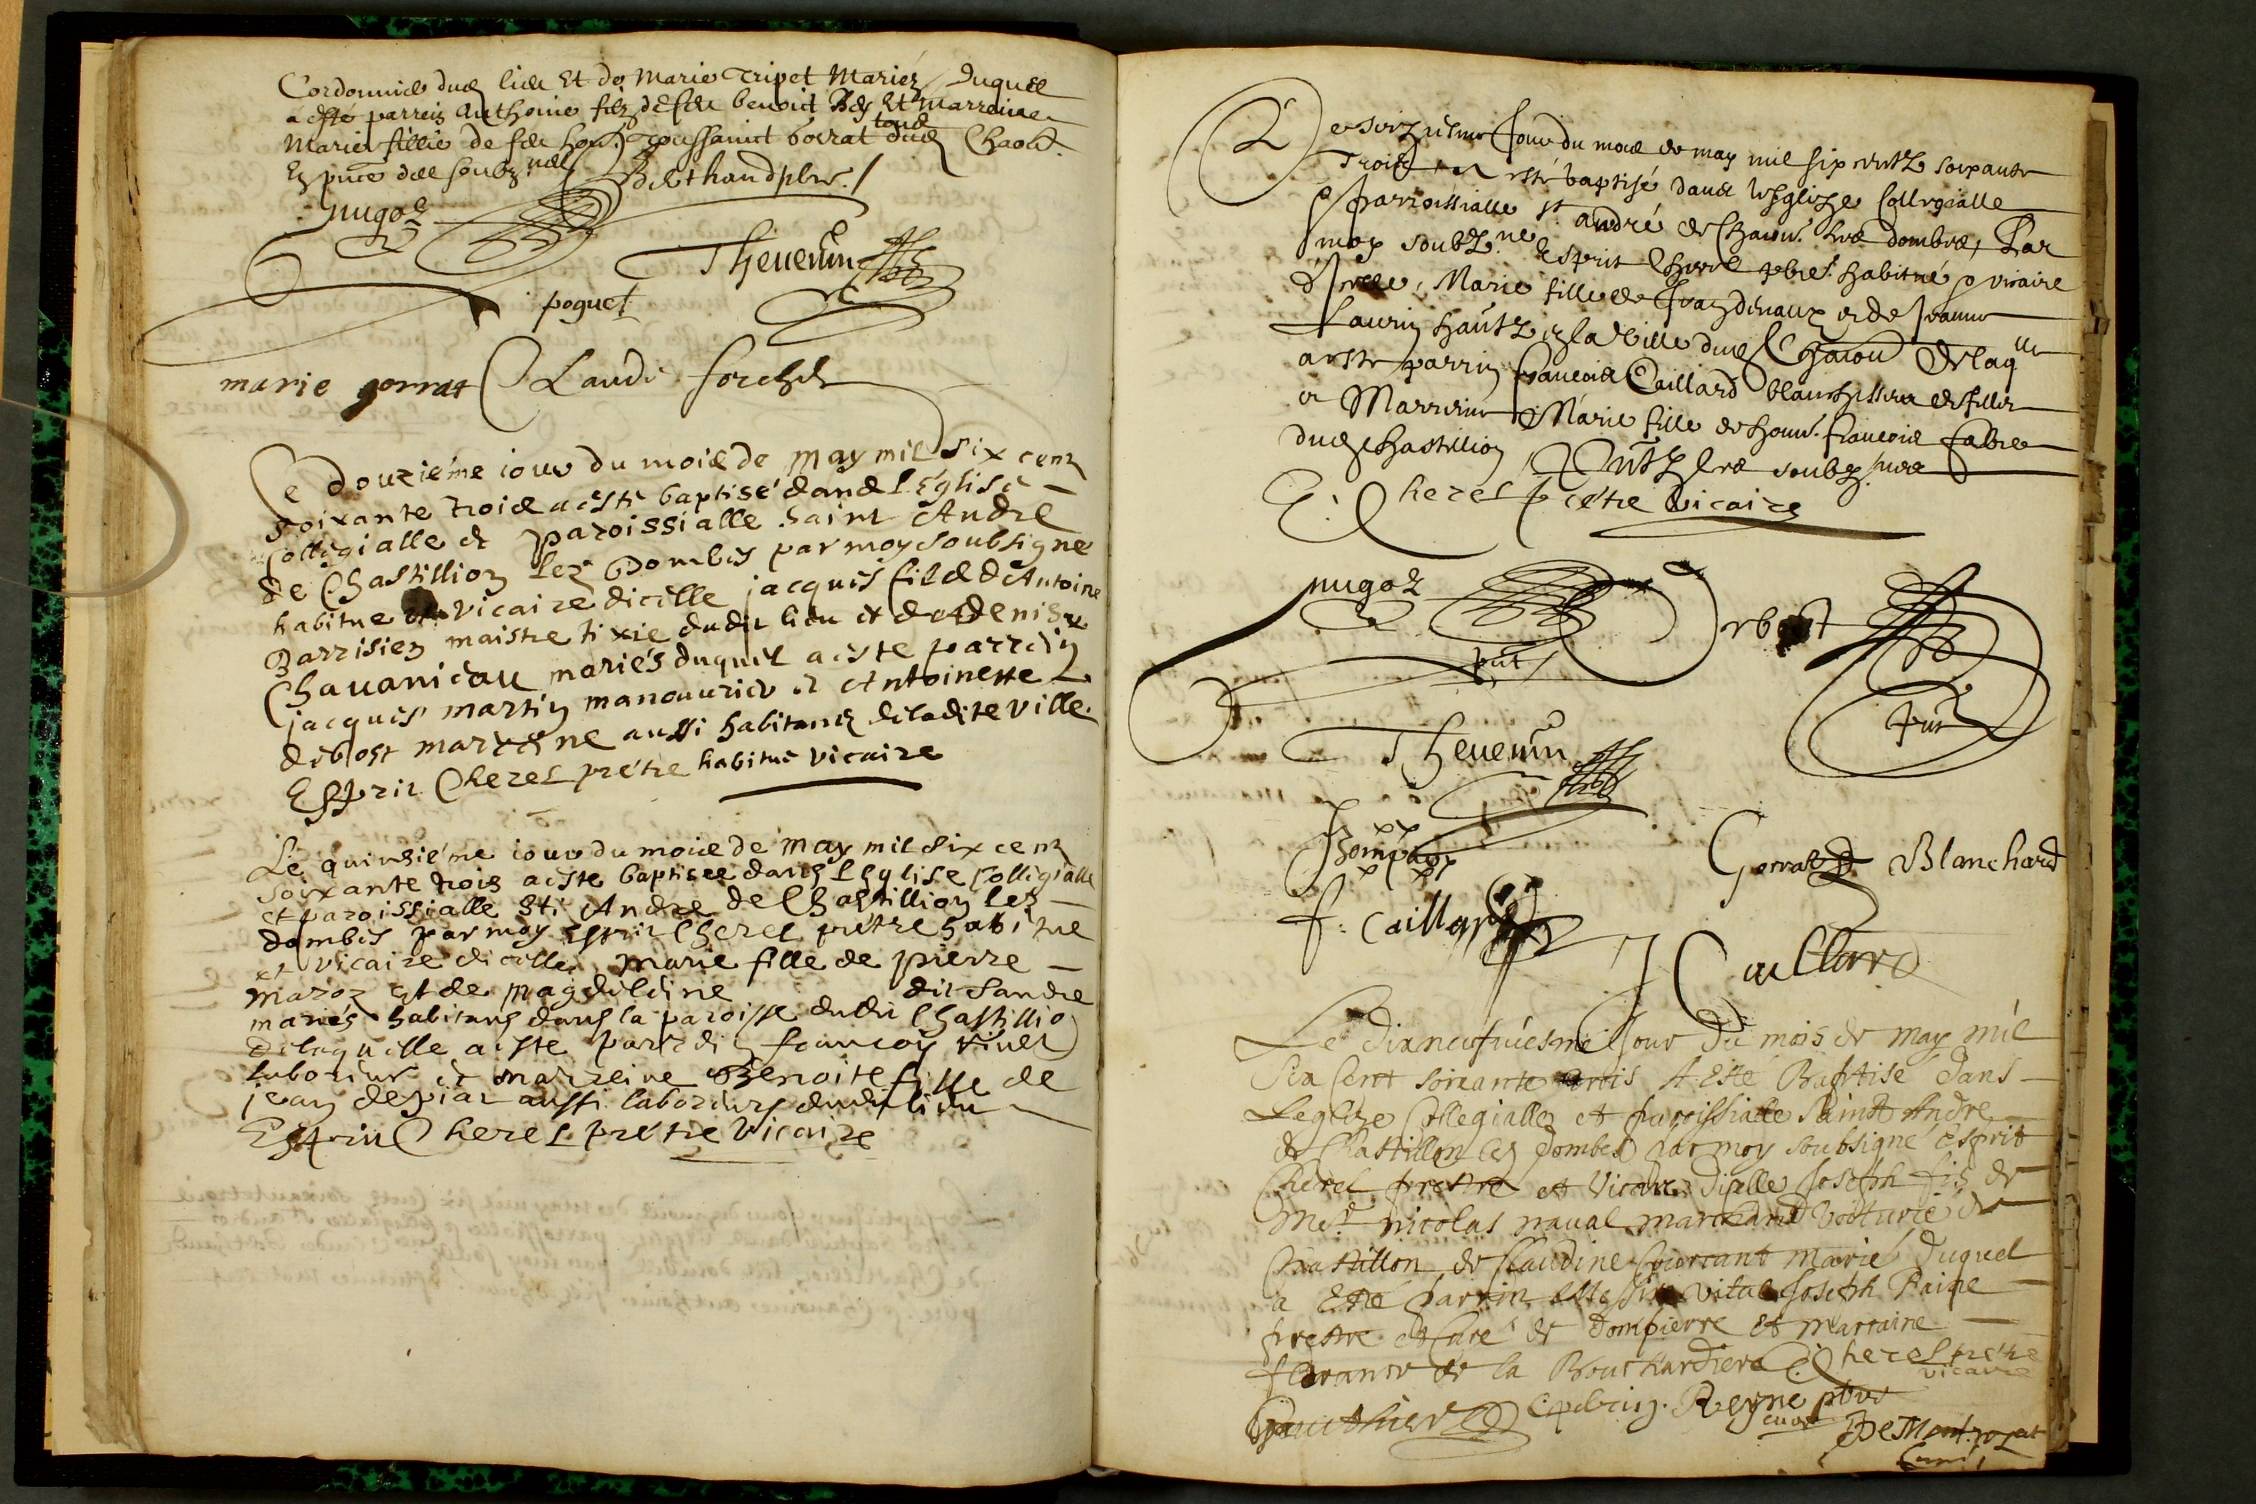 Cordonnier dud lieu Et de Marie Tripet Mariéz Duquel
a esté parrein Anthoine filz de feu benoict Rey Et Marreine
Marie fillie de feu Toussainct borrat tous dud Chaõn.
En pñce des soubz.nes Berthaud pbre./
nugoz
Theuenin
poguet
marie gorrat Claude
Le douziéme iour du mois de may mil six cent
soixante trois a esté baptisé dans l Église
Collégialle et paroissialle saint André
de Chastillion les Dombes par moy soubsigné
habitué et vicaire dicelle jacques fils d Antoine
Barrisien maistre tixie dudit lieu et de denise
Chavanieau mariés duquel a esté parrein
jacques martin manouurier et Antoinette
debost marreine aussi habitans de ladite ville
Esprit Cherel prétre habitué vicaire
Le quinziéme iour du mois de may mil six cent
soixante trois a esté baptisée dans l Eglise Collégialle
et paroissialle St. André de Chastillion les
dombes par moy Esprit Cherel prétre habitué
et vicaire dicelle marie fille de pierre
maroz et de magdeleine dit Sandre
mariés habitans dans la paroisse dudit Chastillio
de laquelle a esté parrein françois viuet
laboureur et marreine Benoite fille de
jean depiar aussi laboureurs dudit lieu
Esprit Cherel prétre vicaire
Le seiziesme Jour du mois de may mil six centz soixante
Trois a esté baptisé dans lesglize Collegialle
& parroissialle St. andré de Chaõn. les dombes, Par
moy soubz.né Esprit Cherel pbre. habitué & vicaire
d'Jcelle, Marie fille de Jean denaux et de Jeanne
Laurin hantz en la ville dud Chãon De laqlle
a esté parrin François Caillard blanchisseur de fillet
et Marreine Marie fille de honn. François fabre
dud Chastillion les soubz.nes
E. Cherel prétre vicaire
nugoz
pnt
Theuenin
pnt
Gorrat Blanchard
f. Caillard
J Caillard
Le Dixneufuiesme Jour Du mois de may mil
Six Cent soixante trois A Esté Baptisé dans
Leglize Collegialle et paroissialle Saint Andre
de Chastillon les Dombes par moy soubsigné Esprit
Cherel prestre et Vicaire dicelle Joseph fis de
Mer nicolas naual marchand voiturié de
Chastillon de Claudine marié Duquel
a Esté parrin Messire vital Joseph Raine
prestre et Curé de Dompierre Et marraine
de la Bouchardiere E. Cherel prétre
vicaire
Reyne pbre
curé De Montrozat